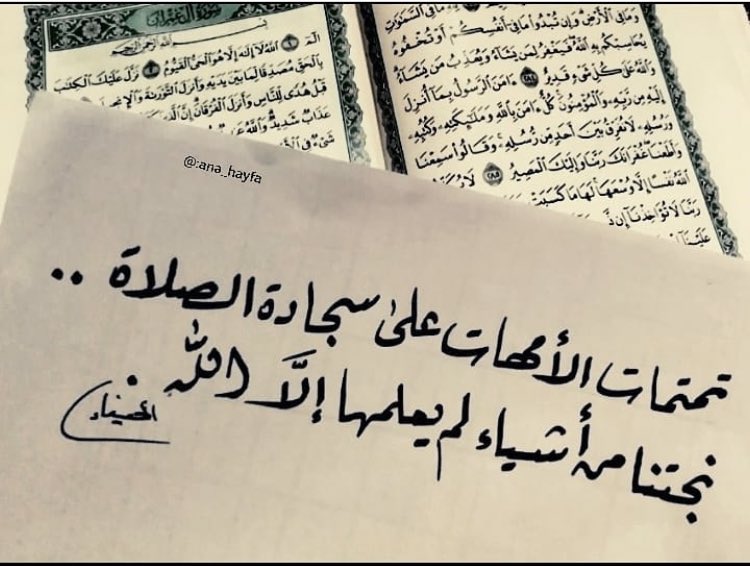 سورة آل عمران
بسم الله الرحمن الرحيم
الم ١ الله لا إله إلا هو الحي القيوم ٢ نزل عليك الكتب
بالحق مصدقا لما بين يديه وأنزل التورىة والإنجيل
قبل هدى للناس وأنزل الفرقان إن الذين
عذاب شديد والله
شيء في
وما في الأرض وإن تبدوا ما في أنفسكم أو تخفوه
يحاسبكم به الله فيغفر لمن يشاء ويعذب من يشاء
والله على كل شيء قدير ٢٨٤ ءامن الرسول بما أنزل
إليه من ربه والمؤمنون كل ءامن بالله وملئكته وكتبه
ورسله لا نفرق بين أحد من رسله وقالوا سمعنا
وأطعنا غفرانك ربنا وإليك المصير ٢٨٥ لا
الله نفسا إلا وسعها لها ما كسبت
ربنا لا تؤاخذنا إن
علينا
@:ana_hayfa
تمتمات الأمهات على سجادة الصلاة ..
نجتنا من أشياء لم يعلمها إلَّا الله.